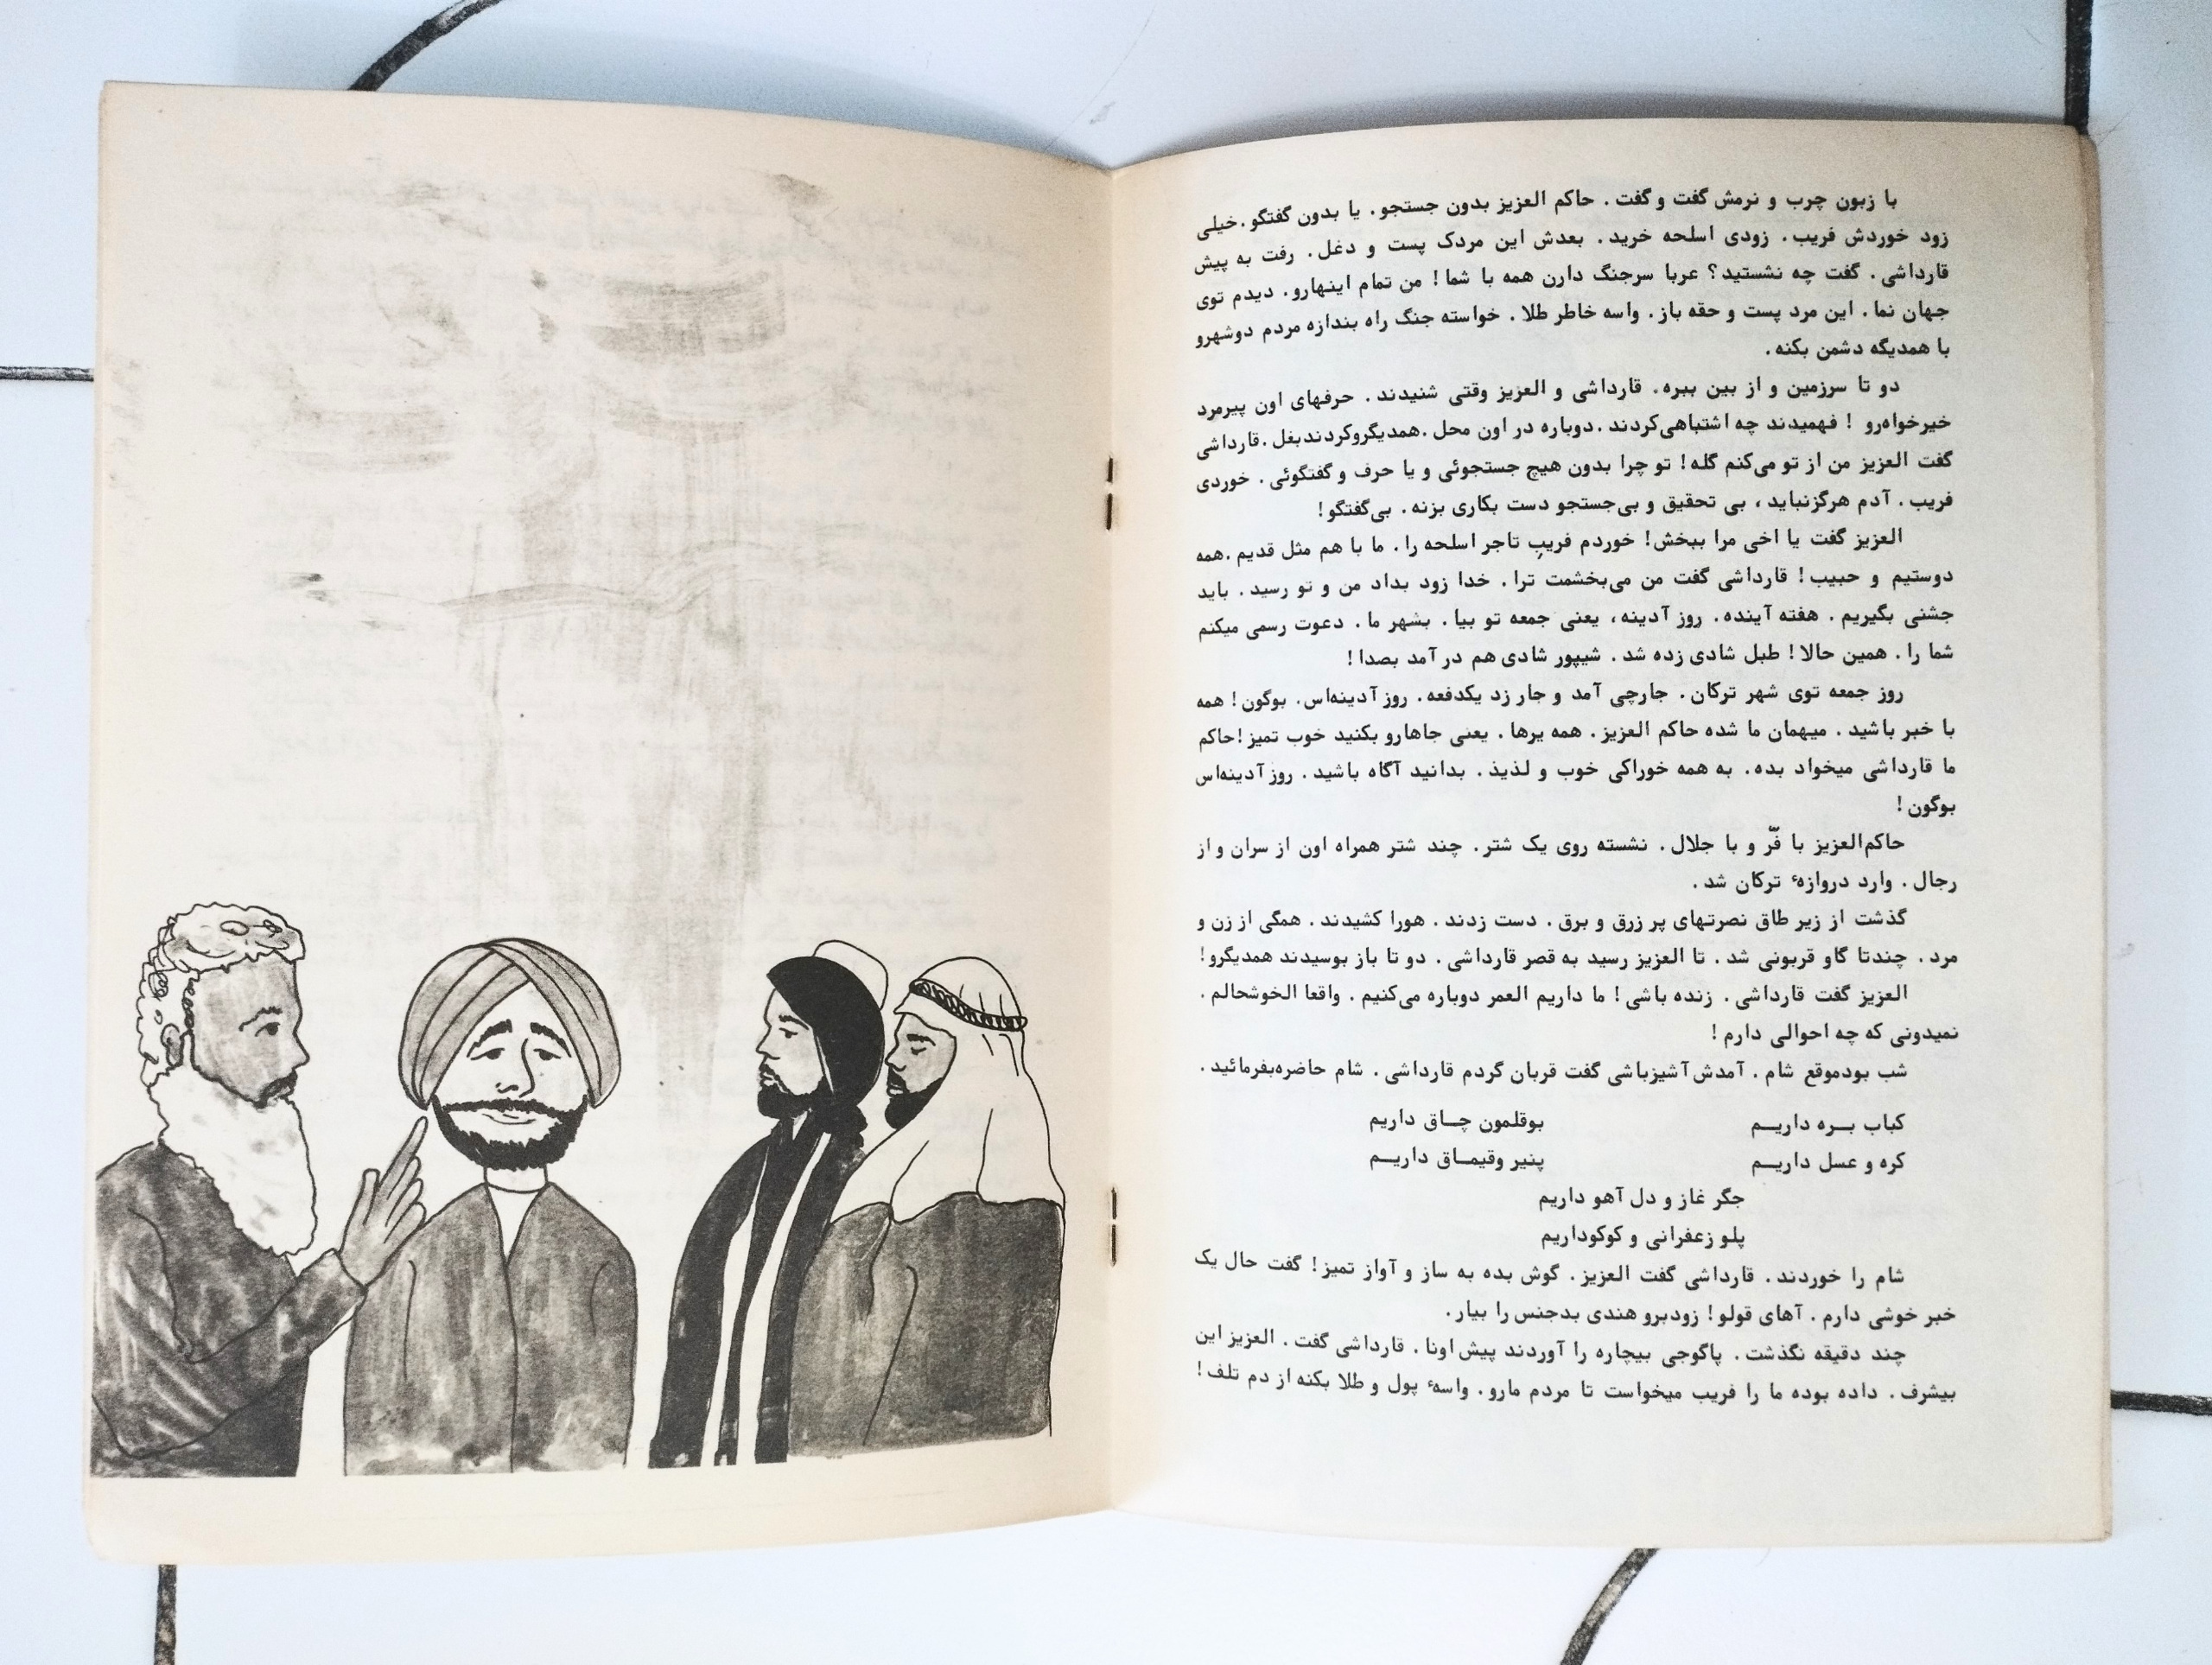 با زبون چرب و نرمش گفت و گفت . حاکم العزیز بدون جستجو . یا بدون گفتگو . خیلی
زود خوردش فریب . زودی اسلحه خرید . بعدش این مردک پست و دغل . رفت به پیش
قارداشی . گفت چه نشستید؟ عربا سرجنگ دارن همه با شما ! من تمام اینهارو . دیدم توی
جهان نما . این مرد پست و حقه باز . واسه خاطر طلا . خواسته جنگ راه بندازه مردم دوشهرو
با همدیگه دشمن بکنه .
دو تا سرزمین و از بین ببره . قارداشی و العزیز وقتی شنیدند . حرفهای اون پیرمرد
خیرخواه‌رو ! فهمیدند چه اشتباهی‌کردند . دوباره در اون محل . همدیگروکردندبغل . قارداشی
گفت العزیز من از تو می‌کنم گله ! تو چرا بدون هیچ جستجوئی و یا حرف و گفتگوئی . خوردی
فریب . آدم هرگزنباید ، بی تحقیق و بی‌جستجو دست بکاری بزنه . بی‌گفتگو !
العزیز گفت یا اخی مرا ببخش ! خوردم فریبِ تاجر اسلحه را . ما با هم مثل قدیم . همه
دوستیم و حبیب ! قارداشی گفت من می‌بخشمت ترا . خدا زود بداد من و تو رسید . باید
جشنی بگیریم . هفته آینده . روز آدینه ، یعنی جمعه تو بیا . بشهر ما . دعوت رسمی میکنم
شما را . همین حالا ! طبل شادی زده شد . شیپور شادی هم در آمد بصدا !
روز جمعه توی شهر ترکان . جارچی آمد و جار زد یکدفعه . روز آدینه‌اس . بوگون ! همه
با خبر باشید . میهمان ما شده حاکم العزیز . همه یرها . یعنی جاهارو بکنید خوب تمیز ! حاکم
ما قارداشی میخواد بده . به همه خوراکی خوب و لذیذ . بدانید آگاه باشید . روز آدینه‌اس
بوگون !
حاکم‌العزیز با فّر و با جلال . نشسته روی یک شتر . چند شتر همراه اون از سران و از
رجال . وارد دروازهٔ ترکان شد .
گذشت از زیر طاق نصرتهای پر زرق و برق . دست زدند . هورا کشیدند . همگی از زن و
مرد . چندتا گاو قربونی شد . تا العزیز رسید به قصر قارداشی . دو تا باز بوسیدند همدیگرو !
العزیز گفت قارداشی . زنده باشی ! ما داریم العمر دوباره می‌کنیم . واقعا الخوشحالم .
نمیدونی که چه احوالی دارم !
شب بودموقع شام . آمدش‌آشپزباشی گفت قربان گردم قارداشی . شام حاضره‌بفرمائید .
کباب بــره داریــم بوقلمون چــاق داریم
کره و عسل داریــم پنیر وقیمــاق داریــم
جگر غاز و دل آهو داریم
پلو زعفرانی و کوکوداریم
شام را خوردند . قارداشی گفت العزیز . گوش بده به ساز و آواز تمیز ! گفت حال یک
خبر خوشی دارم . آهای قولو ! زودبرو هندی بدجنس را بیار .
چند دقیقه نگذشت . پاگوجی بیچاره را آوردند پیش‌اونا . قارداشی گفت . العزیز این
بیشرف . داده بوده ما را فریب میخواست تا مردم مارو . واسهٔ پول و طلا بکنه از دم تلف !